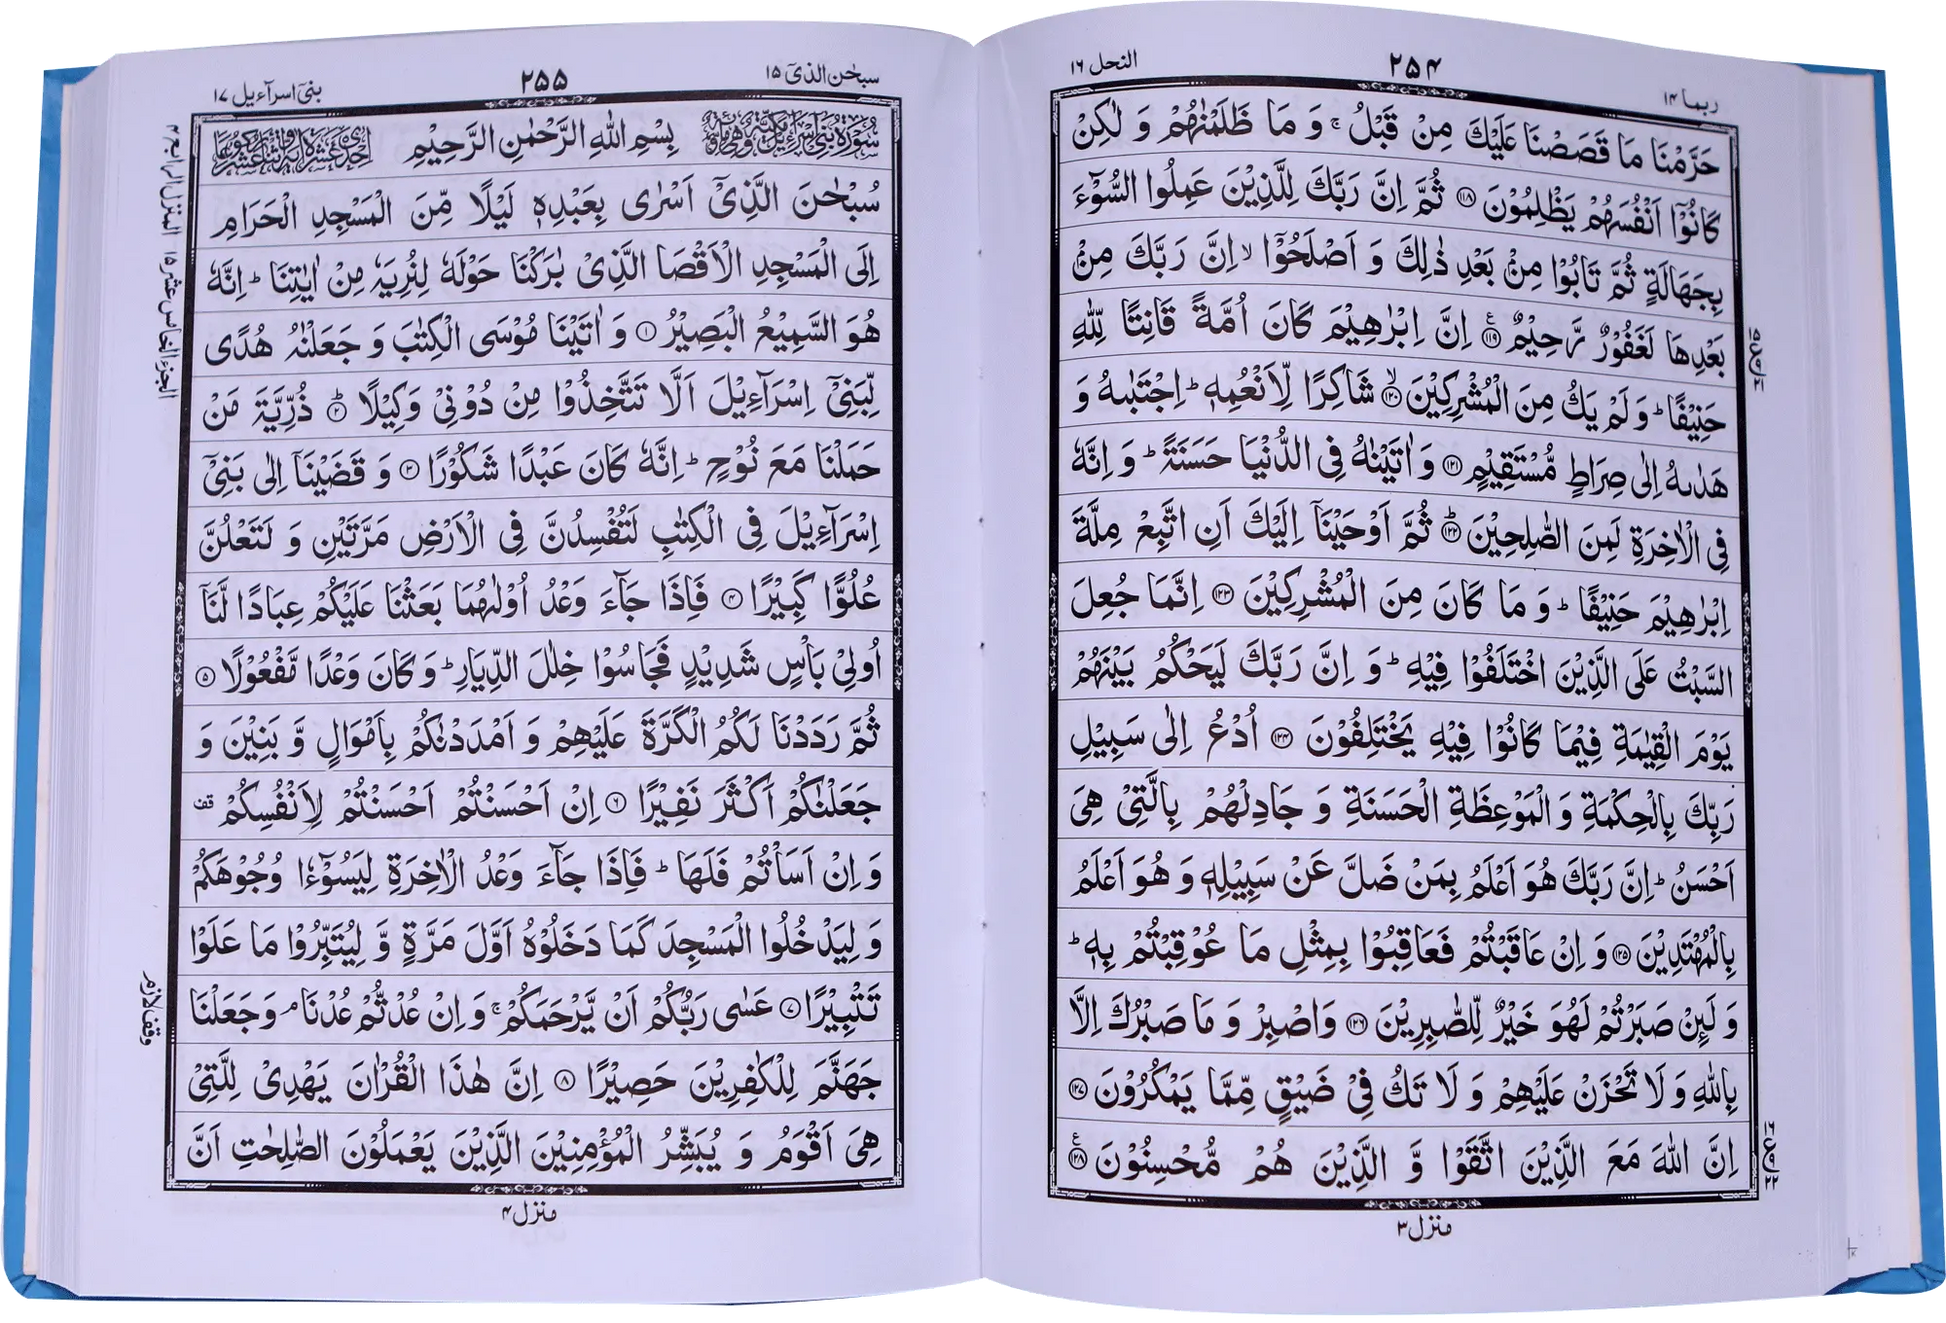 النحل ١٦
٢٥٤
ربما ١٤
حَرَّمْنَا مَا قَصَصْنَا عَلَيْكَ مِنْ قَبْلُ ۚ وَ مَا ظَلَمْنٰهُمْ وَ لٰكِنْ
كَانُوْۤا اَنْفُسَهُمْ يَظْلِمُوْنَ ﴿۱۱۸﴾ ثُمَّ اِنَّ رَبَّكَ لِلَّذِيْنَ عَمِلُوا السُّوْٓءَ
بِجَهَالَةٍ ثُمَّ تَابُوْا مِنْۢ بَعْدِ ذٰلِكَ وَ اَصْلَحُوْۤا ۙ اِنَّ رَبَّكَ مِنْۢ
بَعْدِهَا لَغَفُوْرٌ رَّحِيْمٌ ﴿۱۱۹﴾ اِنَّ اِبْرٰهِيْمَ كَانَ اُمَّةً قَانِتًا لِّلّٰهِ
حَنِيْفًا ؕ وَ لَمْ يَكُ مِنَ الْمُشْرِكِيْنَ ﴿۱۲۰﴾ شَاكِرًا لِّاَنْعُمِهٖ ؕ اِجْتَبٰىهُ وَ
هَدٰىهُ اِلٰى صِرَاطٍ مُّسْتَقِيْمٍ ﴿۱۲۱﴾ وَ اٰتَيْنٰهُ فِى الدُّنْيَا حَسَنَةً ؕ وَ اِنَّهٗ
فِى الْاٰخِرَةِ لَمِنَ الصّٰلِحِيْنَ ﴿۱۲۲﴾ ثُمَّ اَوْحَيْنَاۤ اِلَيْكَ اَنِ اتَّبِعْ مِلَّةَ
اِبْرٰهِيْمَ حَنِيْفًا ؕ وَ مَا كَانَ مِنَ الْمُشْرِكِيْنَ ﴿۱۲۳﴾ اِنَّمَا جُعِلَ
السَّبْتُ عَلَى الَّذِيْنَ اخْتَلَفُوْا فِيْهِ ؕ وَ اِنَّ رَبَّكَ لَيَحْكُمُ بَيْنَهُمْ
يَوْمَ الْقِيٰمَةِ فِيْمَا كَانُوْا فِيْهِ يَخْتَلِفُوْنَ ﴿۱۲۴﴾ اُدْعُ اِلٰى سَبِيْلِ
رَبِّكَ بِالْحِكْمَةِ وَ الْمَوْعِظَةِ الْحَسَنَةِ وَ جَادِلْهُمْ بِالَّتِىْ هِىَ
اَحْسَنُ ؕ اِنَّ رَبَّكَ هُوَ اَعْلَمُ بِمَنْ ضَلَّ عَنْ سَبِيْلِهٖ وَ هُوَ اَعْلَمُ
بِالْمُهْتَدِيْنَ ﴿۱۲۵﴾ وَ اِنْ عَاقَبْتُمْ فَعَاقِبُوْا بِمِثْلِ مَا عُوْقِبْتُمْ بِهٖ ؕ
وَ لَئِنْ صَبَرْتُمْ لَهُوَ خَيْرٌ لِّلصّٰبِرِيْنَ ﴿۱۲۶﴾ وَاصْبِرْ وَ مَا صَبْرُكَ اِلَّا
بِاللّٰهِ وَ لَا تَحْزَنْ عَلَيْهِمْ وَ لَا تَكُ فِىْ ضَيْقٍ مِّمَّا يَمْكُرُوْنَ ﴿۱۲۷﴾
اِنَّ اللّٰهَ مَعَ الَّذِيْنَ اتَّقَوْا وَّ الَّذِيْنَ هُمْ مُّحْسِنُوْنَ ﴿۱۲۸﴾
منزل ٣
سبحٰن الذىۤ ١٥
٢٥٥
بنىۤ اسرآءيل ١٧
بِسْمِ اللّٰهِ الرَّحْمٰنِ الرَّحِيْمِ
سُبْحٰنَ الَّذِىْۤ اَسْرٰى بِعَبْدِهٖ لَيْلًا مِّنَ الْمَسْجِدِ الْحَرَامِ
اِلَى الْمَسْجِدِ الْاَقْصَا الَّذِىْ بٰرَكْنَا حَوْلَهٗ لِنُرِيَهٗ مِنْ اٰيٰتِنَا ؕ اِنَّهٗ
هُوَ السَّمِيْعُ الْبَصِيْرُ ﴿۱﴾ وَ اٰتَيْنَا مُوْسَى الْكِتٰبَ وَ جَعَلْنٰهُ هُدًى
لِّبَنِىْۤ اِسْرَآءِيْلَ اَلَّا تَتَّخِذُوْا مِنْ دُوْنِىْ وَكِيْلًا ﴿۲﴾ ذُرِّيَّةَ مَنْ
حَمَلْنَا مَعَ نُوْحٍ ؕ اِنَّهٗ كَانَ عَبْدًا شَكُوْرًا ﴿۳﴾ وَ قَضَيْنَاۤ اِلٰى بَنِىْۤ
اِسْرَآءِيْلَ فِى الْكِتٰبِ لَتُفْسِدُنَّ فِى الْاَرْضِ مَرَّتَيْنِ وَ لَتَعْلُنَّ
عُلُوًّا كَبِيْرًا ﴿۴﴾ فَاِذَا جَآءَ وَعْدُ اُوْلٰىهُمَا بَعَثْنَا عَلَيْكُمْ عِبَادًا لَّنَاۤ
اُولِىْ بَاْسٍ شَدِيْدٍ فَجَاسُوْا خِلٰلَ الدِّيَارِ ؕ وَ كَانَ وَعْدًا مَّفْعُوْلًا ﴿۵﴾
ثُمَّ رَدَدْنَا لَكُمُ الْكَرَّةَ عَلَيْهِمْ وَ اَمْدَدْنٰكُمْ بِاَمْوَالٍ وَّ بَنِيْنَ وَ
جَعَلْنٰكُمْ اَكْثَرَ نَفِيْرًا ﴿۶﴾ اِنْ اَحْسَنْتُمْ اَحْسَنْتُمْ لِاَنْفُسِكُمْ قف
وَ اِنْ اَسَاْتُمْ فَلَهَا ؕ فَاِذَا جَآءَ وَعْدُ الْاٰخِرَةِ لِيَسُوْٓءٗا وُجُوْهَكُمْ
وَ لِيَدْخُلُوا الْمَسْجِدَ كَمَا دَخَلُوْهُ اَوَّلَ مَرَّةٍ وَّ لِيُتَبِّرُوْا مَا عَلَوْا
تَتْبِيْرًا ﴿۷﴾ عَسٰى رَبُّكُمْ اَنْ يَّرْحَمَكُمْ ۚ وَ اِنْ عُدْتُّمْ عُدْنَا ۘ وَ جَعَلْنَا
جَهَنَّمَ لِلْكٰفِرِيْنَ حَصِيْرًا ﴿۸﴾ اِنَّ هٰذَا الْقُرْاٰنَ يَهْدِىْ لِلَّتِىْ
هِىَ اَقْوَمُ وَ يُبَشِّرُ الْمُؤْمِنِيْنَ الَّذِيْنَ يَعْمَلُوْنَ الصّٰلِحٰتِ اَنَّ
منزل ٤
الجزء الخامس عشر ١٥
المنزل الرابع ٤
وقف لازم